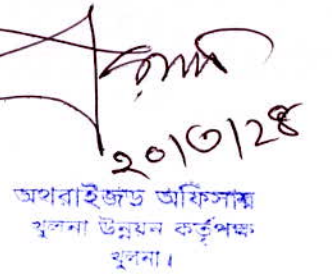 ২০|৩|২৪
অথরাইজড অফিসার
খুলনা উন্নয়ন কর্তৃপক্ষ
খুলনা।